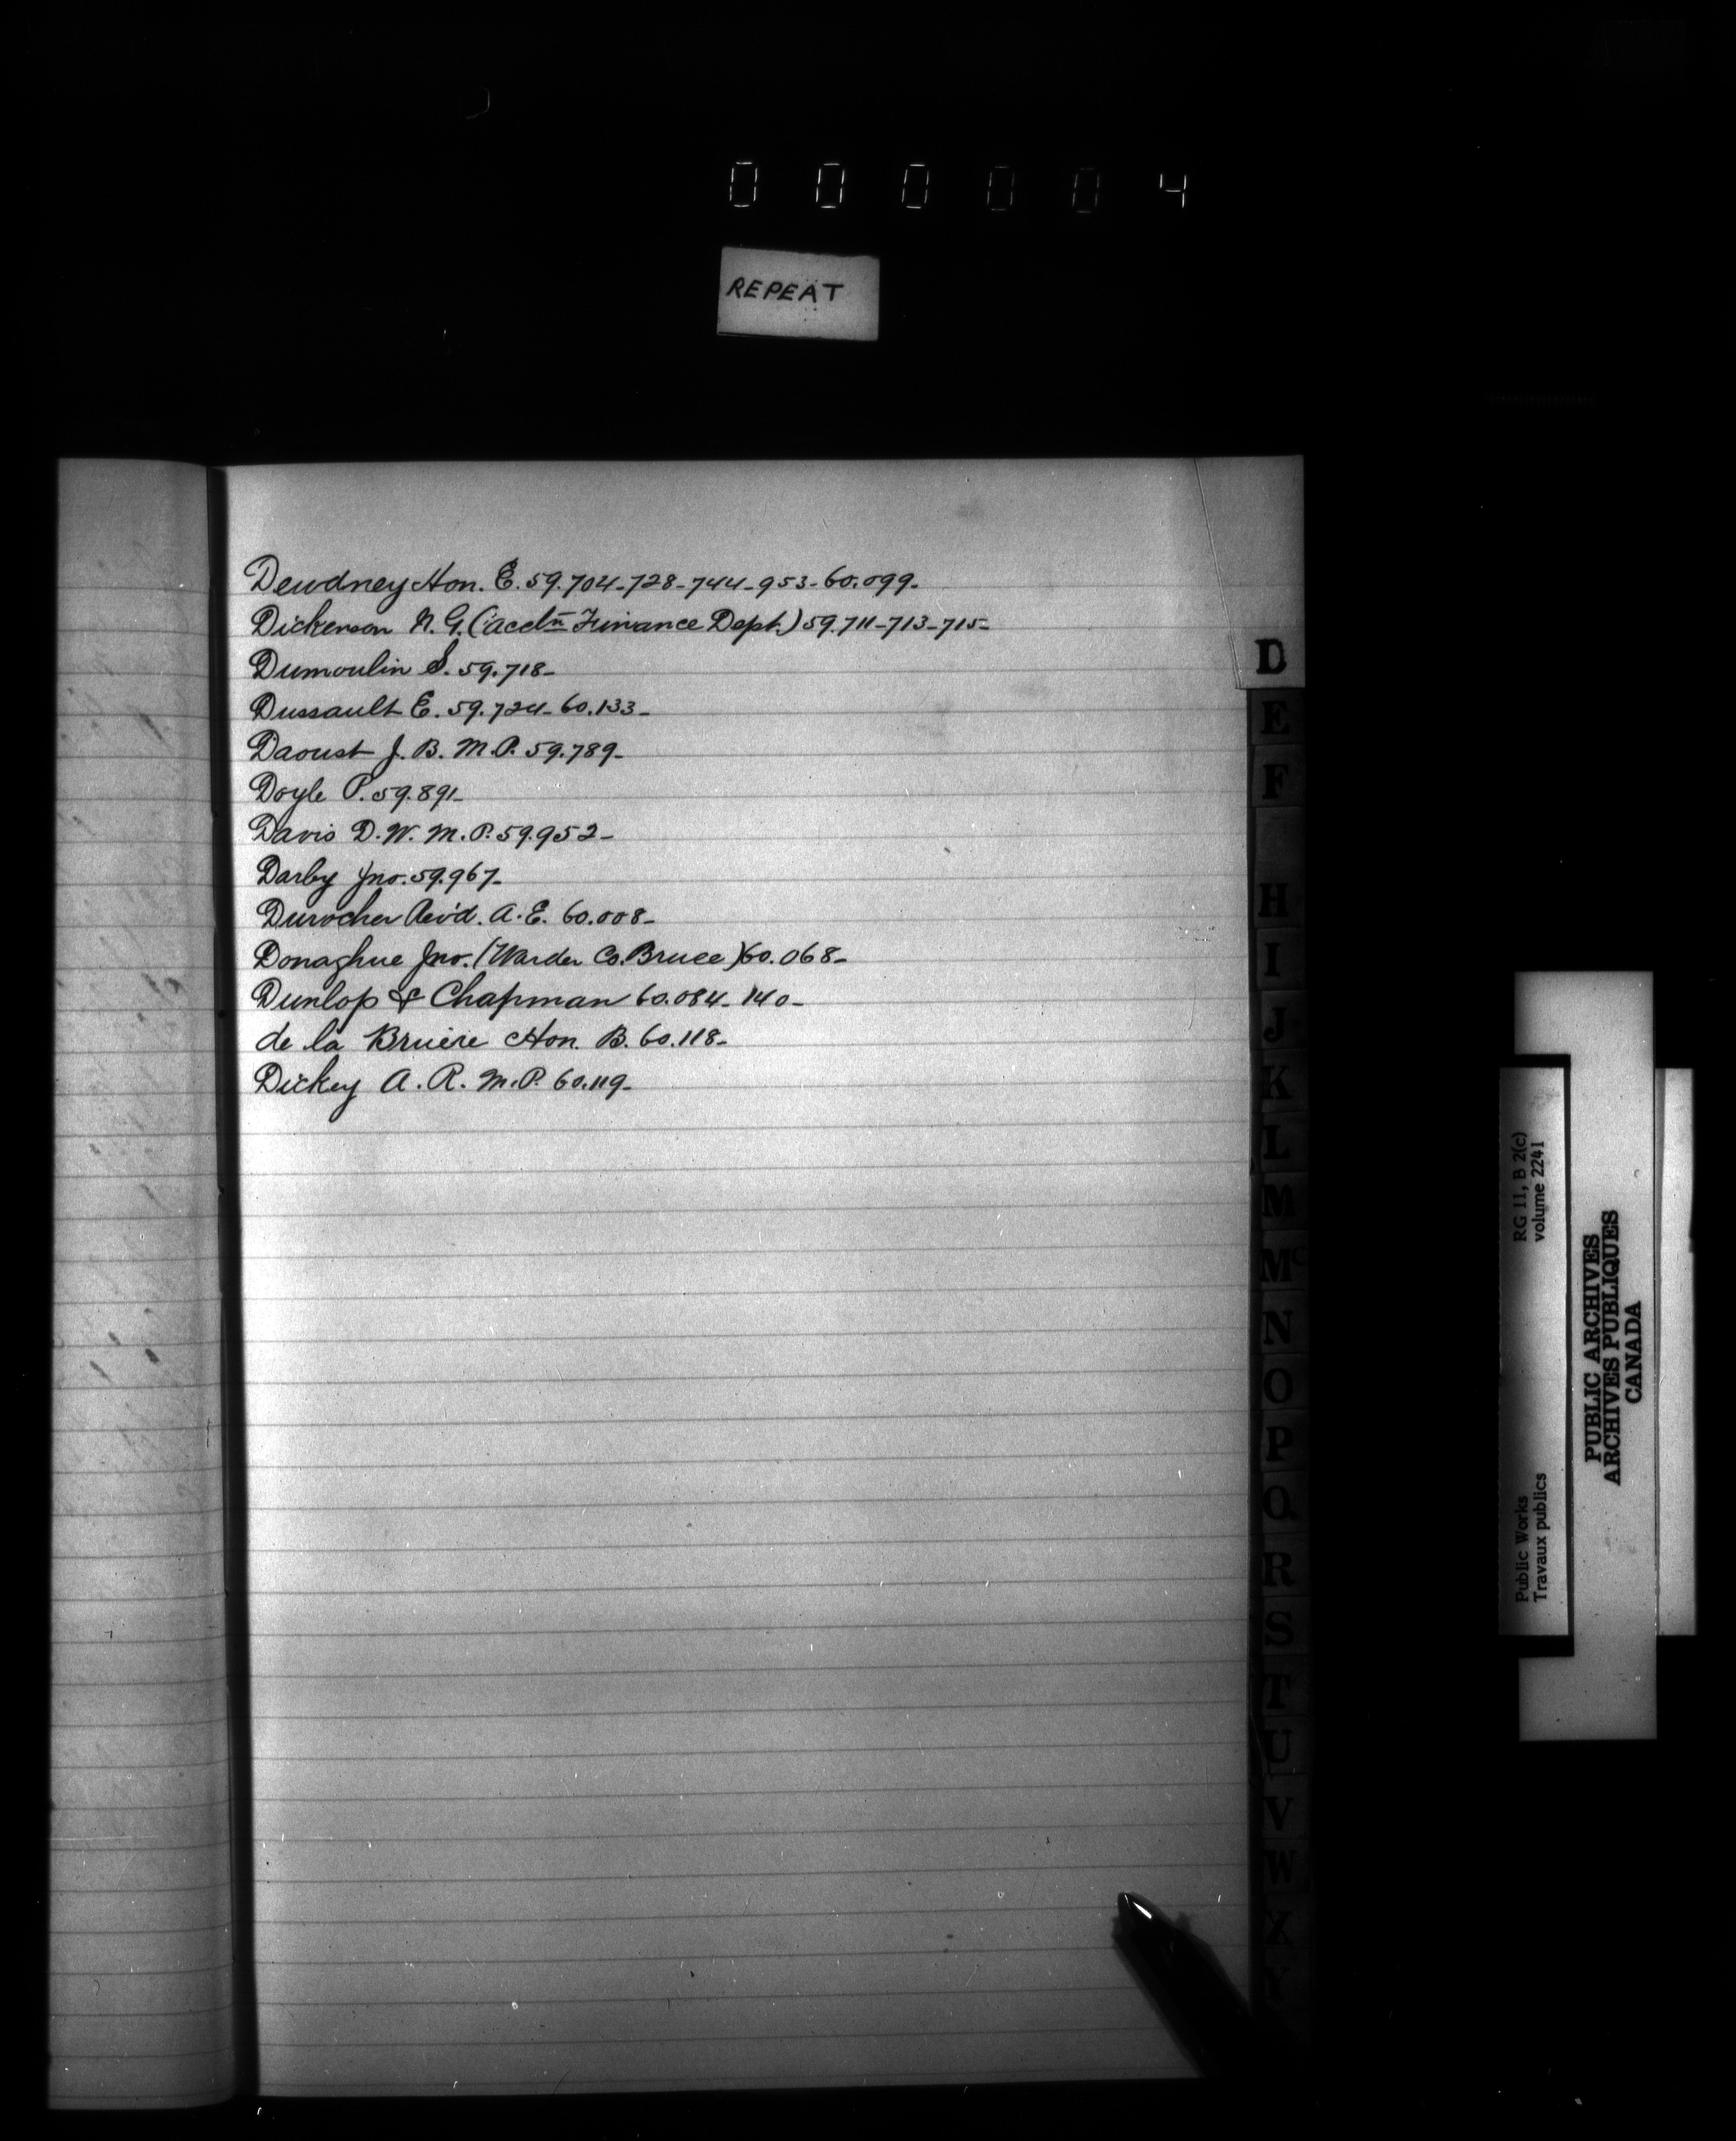 000004
REPEAT
Dewdney Hon. E. 59.704-728-744-953-60.099-
Dickenson N. G. (Acctn Finance Dept.) 59.711-713-715-
Dumoulin S. 59.718-
Dussault E. 59.724-60.133-
Daoust J. B. M.P. 59.789-
Doyle P. 59.891-
Davis D. W. M.P. 59.952-
Darby Jno. 59.967-
Durocher Rev'd. A. E. 60.008-
Donaghue Jno. (Warden Co. Bruce) 60.068-
Dunlop & Chapman 60.084-140-
de la Bruère Hon. B. 60.118-
Dickey A. R. M.P. 60.119-
D
E
F
H
I
J
K
L
M
Mc
N
O
P
Q
R
S
T
U
V
W
X
Y
Public Works
Travaux publics
RG 11, B 2(c)
volume 2241
PUBLIC ARCHIVES
ARCHIVES PUBLIQUES
CANADA